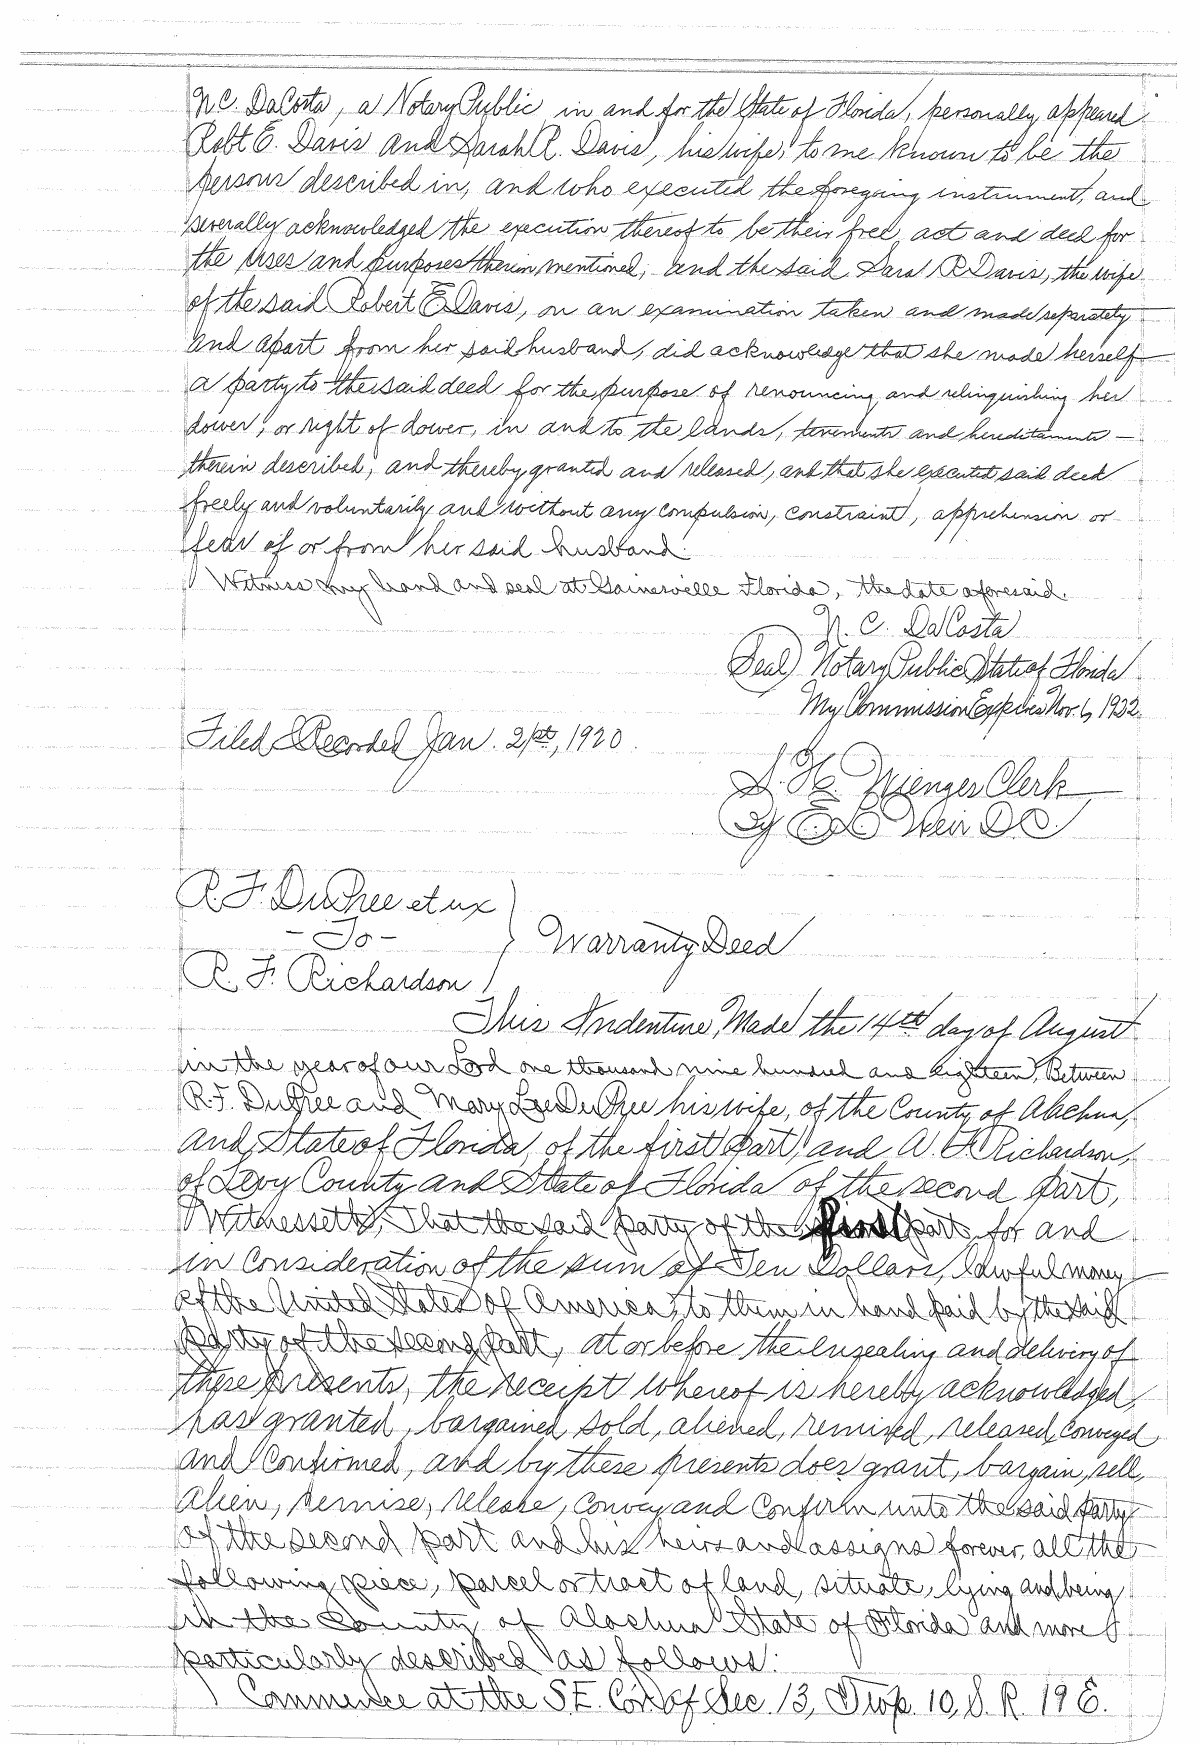 N.C. DaCosta, a Notary Public in and for the State of Florida, personally appeared
Robt E. Davis and Sarah R. Davis, his wife, to me known to be the
persons described in, and who executed the foregoing instrument, and
severally acknowledged the execution thereof to be their free act and deed for
the uses and purposes therein mentioned; and the said Sara R Davis, the wife
of the said Robert E Davis, on an examination taken and made separately
and apart from her said husband, did acknowledge that she made herself
a party to the said deed for the purpose of renouncing and relinquishing her
dower, or right of dower, in and to the lands, tenements and hereditaments -
therein described, and thereby granted and released, and that she executed said deed
freely and voluntarily and without any compulsion, constraint, apprehension or
fear of or from her said husband.
Witness my hand and seal at Gainesville Florida, the date aforesaid.
N. C. DaCosta
(Seal) Notary Public State of Florida
My Commission Expires Nov. 6, 1922.
Filed & Recorded Jan. 21st, 1920.
S. H. Wienges Clerk
By Weir D.C.
R. F. DuPree et ux
- To -
Warranty Deed
R. F. Richardson
This Indenture, Made the 14th day of August
in the year of our Lord one thousand nine hundred and eighteen, Between
R.F. DuPree and Mary Lee DuPree his wife, of the County of Alachua,
and State of Florida, of the first part, and A. F. Richardson,
of Levy County and State of Florida of the second part,
Witnesseth, That the said party of the first part, for and
in consideration of the sum of Ten Dollars, lawful money
of the United States of America, to them in hand paid by the said
party of the second part, at or before the ensealing and delivery of
these presents, the receipt whereof is hereby acknowledged,
has granted, bargained, sold, aliened, remised, released, conveyed
and confirmed, and by these presents does grant, bargain, sell,
alien, remise, release, convey and confirm unto the said party
of the second part and his heirs and assigns forever, all the
following piece, parcel or tract of land, situate, lying and being
in the County of Alachua State of Florida and more
particularly described as follows:
Commence at the S.E. Cor. of Sec. 13, Twp. 10, S. R. 19 E.